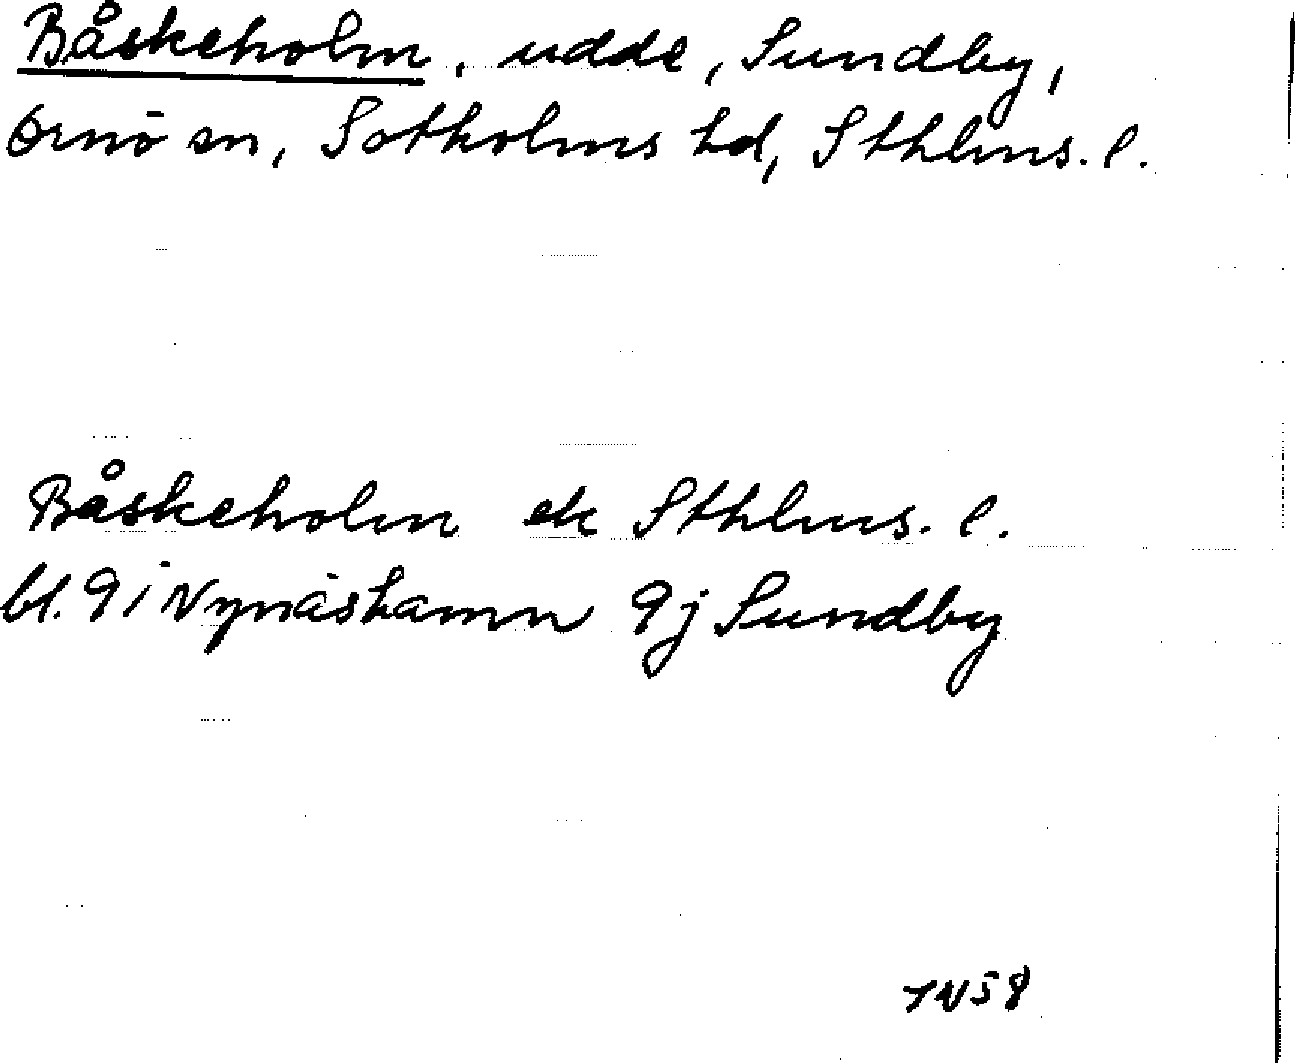 Båskeholm, udde, Sundby,
Ornö sn, Sotholms hd, Sthlms. l.
Båskeholm ek Sthlms. l.
bl. 9 i Nynäshamn 9j Sundby
1958